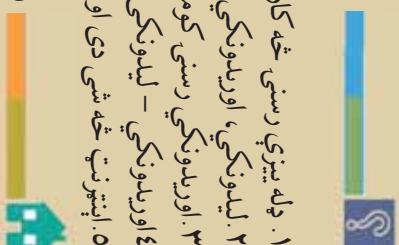 ۱. ډله ییزې رسنۍ څه کار
۲. لیدونکي، اوریدونکي
۳. اوریدونکي رسنۍ کوم
٤. اوریدونکي – لیدونکي
۵. انټرنټ څه شی دی او